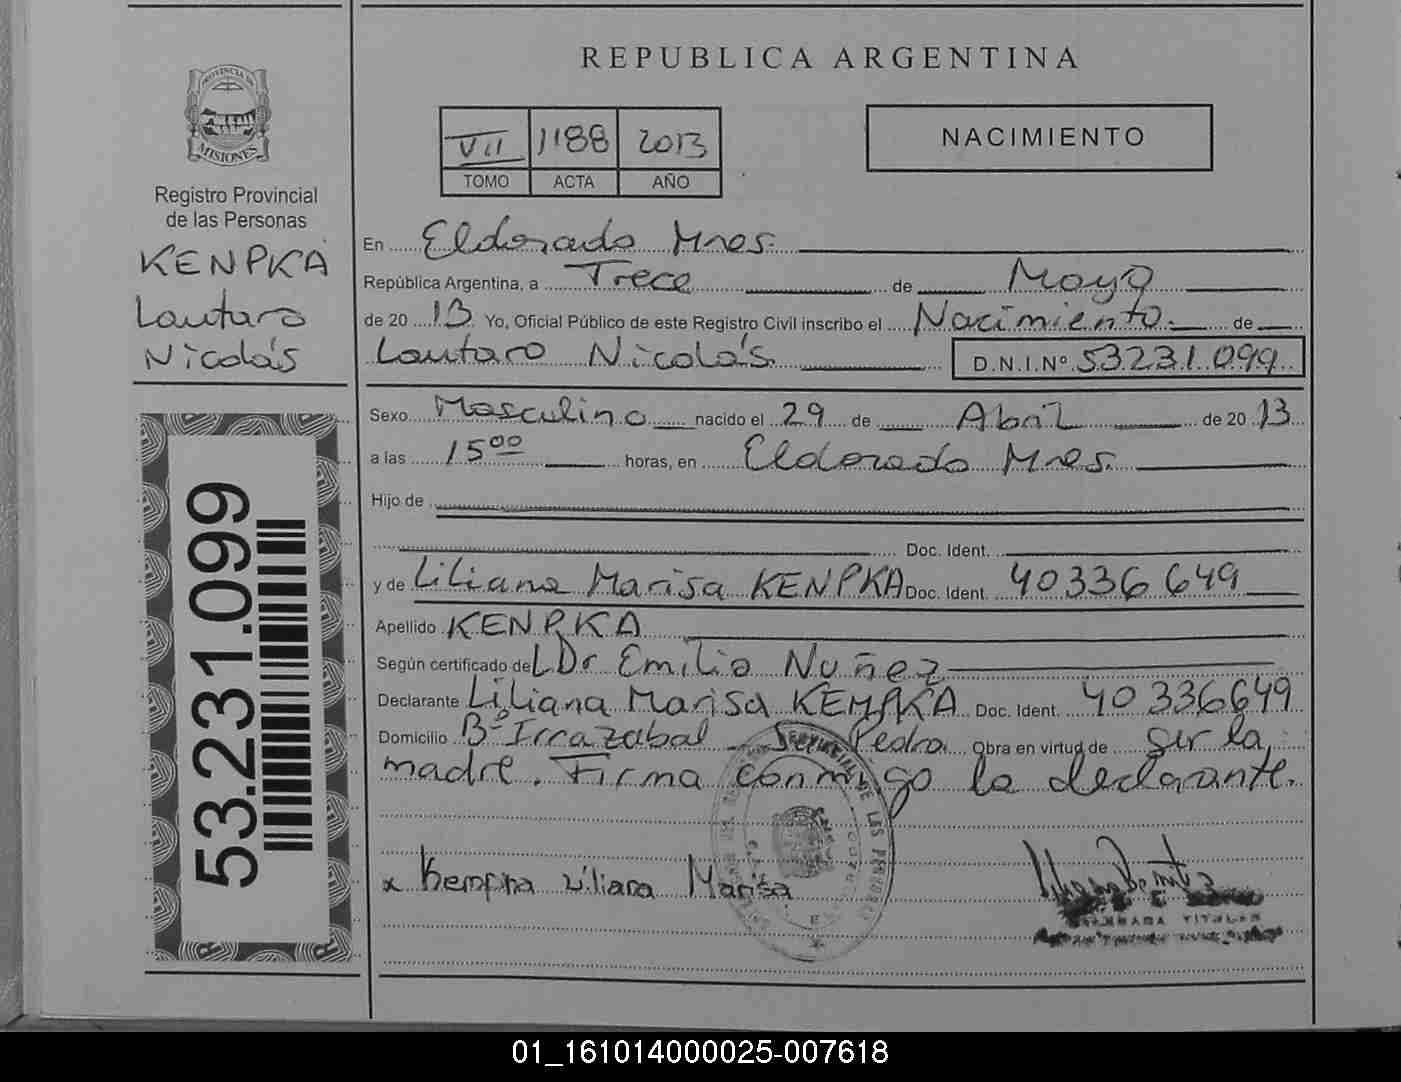 REPUBLICA ARGENTINA
PROVINCIA DE
MISIONES
Registro Provincial
de las Personas
KENPKA
Lautaro
Nicolás
53.231.099
VII 1188 2013
TOMO ACTA AÑO
NACIMIENTO
En Eldorado Mnes.
República Argentina, a Trece de Mayo
de 2013 Yo, Oficial Público de este Registro Civil inscribo el Nacimiento de
Lautaro Nicolás. D.N.I.Nº 53231099
Sexo Masculino nacido el 29 de Abril de 2013
a las 15⁰⁰ horas, en Eldorado Mnes.
Hijo de
Doc. Ident.
y de Liliana Marisa KENPKA Doc. Ident. 40336649
Apellido KENPKA
Según certificado del Dr Emilio Nuñez
Declarante Liliana Marisa KEMPKA Doc. Ident. 40336649
Domicilio Bº Irrazabal Pedro. Obra en virtud de ser la
madre. Firma conmigo la declarante.
x Kempka Liliana Marisa
TITULAR
01_161014000025-007618